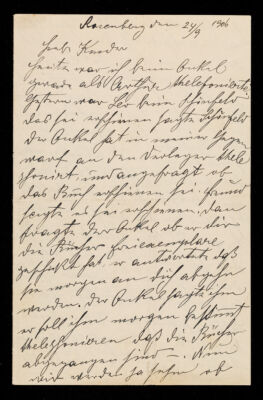 Rosenberg den 24/9 1906
Liebe Kinder
Heute war ich beim Onkel
gerade als Arthur telefonirte
Gestern war Leo beim Schönfeld
das sei erschienen sagte Schönfeld
der Onkel hat in meiner Gegen
wart an den Verleger thele
phonirt und angefragt ob
das Buch erschienen sei
sagte es sei erschienen, dan
fragte der Onkel ob er dir
die Bücher freiexemplare
geschickt hat, er antwortete daß
sie morgen an dich abgehn
werden, der Onkel sagte ihm
er soll ihm morgen bestimmt
thelephoniren daß die Bücher
abgegangen sind —. Nun
wir werden ja sehn ob